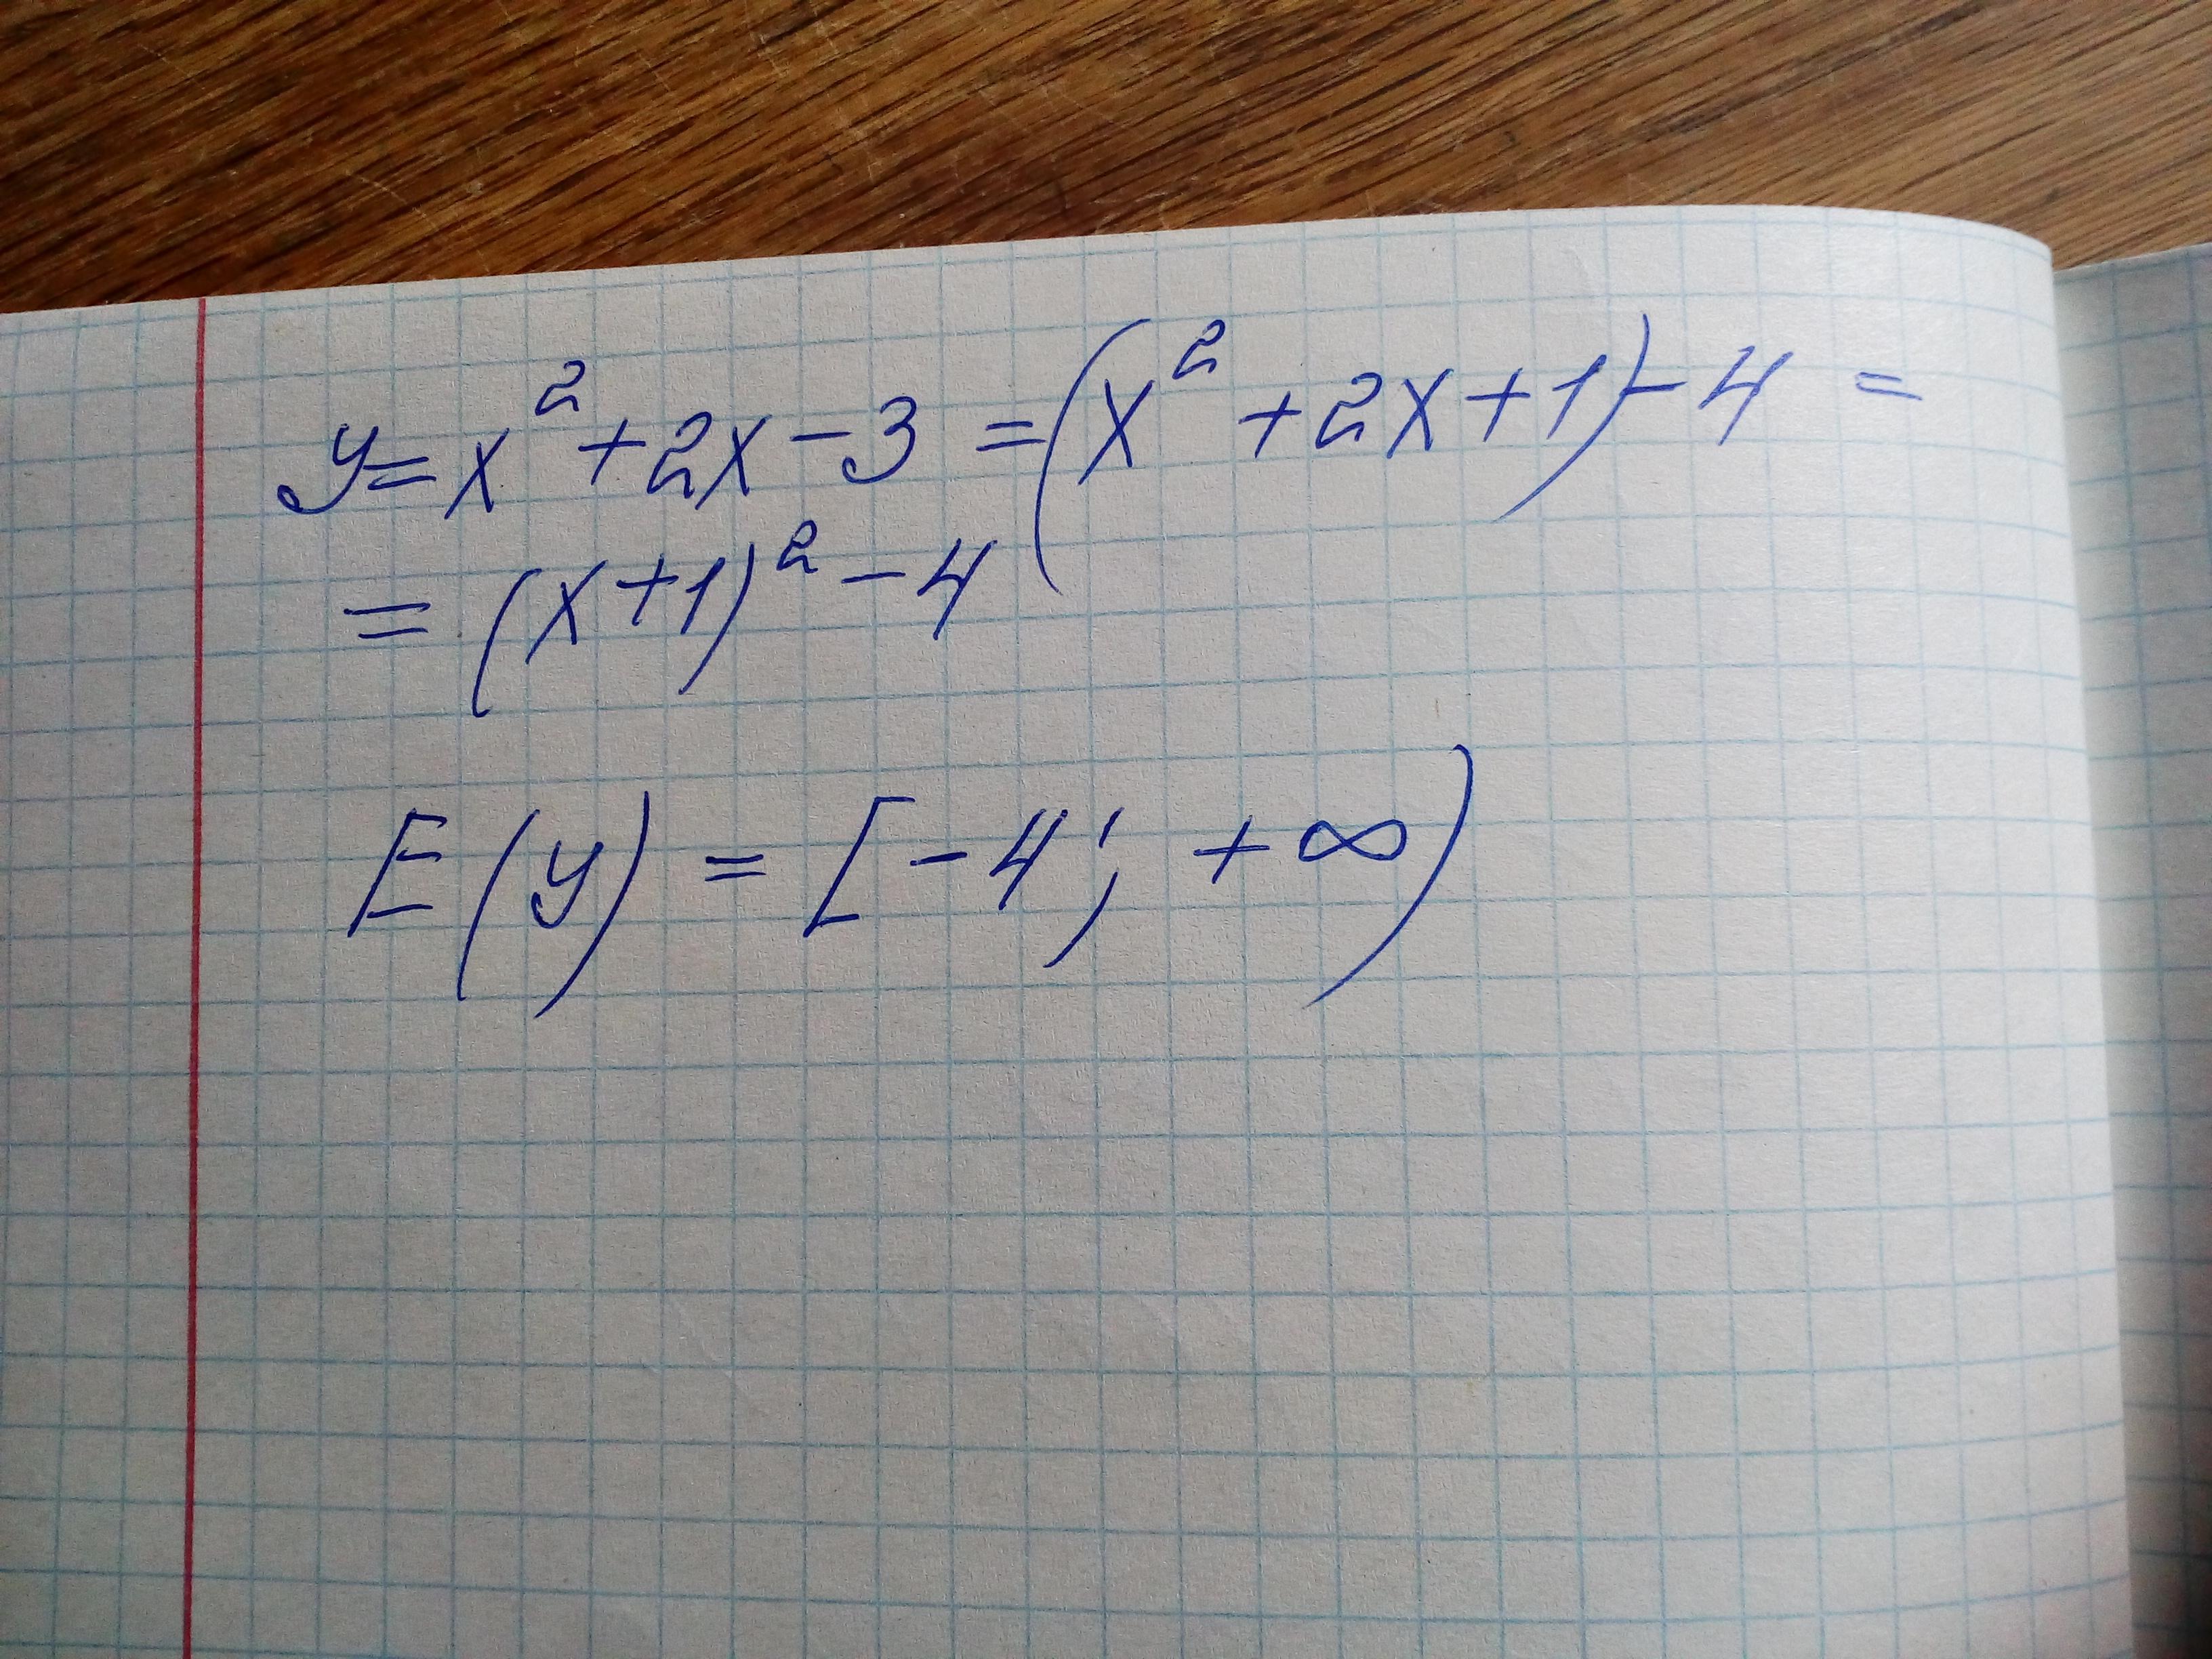 y = x² + 2x - 3 = (x² + 2x + 1) - 4 =
= (x + 1)² - 4
E(y) = [-4; +∞)